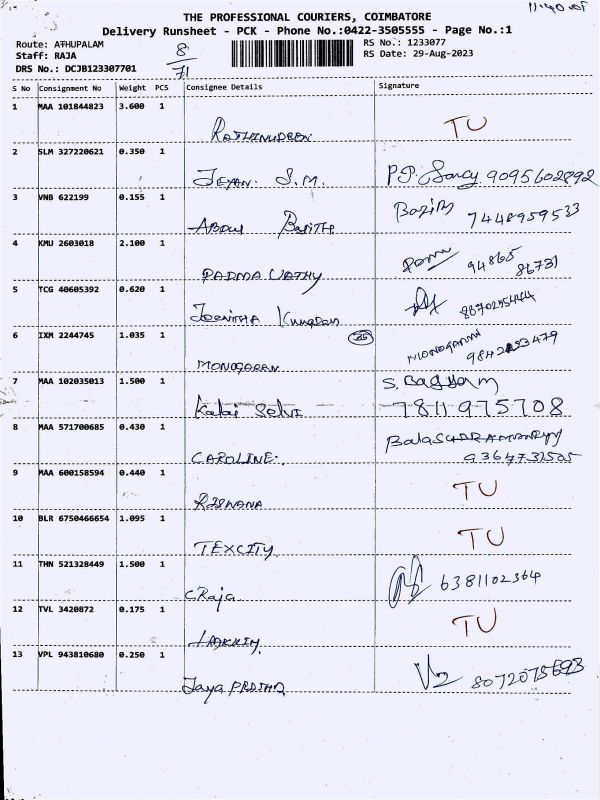 11:40
THE PROFESSIONAL COURIERS, COIMBATORE
Delivery Runsheet - PCK - Phone No.:0422-3505555 - Page No.:1
Route: ATHUPALAM 8 RS No.: 1233077
Staff: RAJA 71 RS Date: 29-Aug-2023
DRS No.: DCJB123307701
S No Consignment No Weight PCS Consignee Details Signature
1 MAA 101844823 3.600 1
RATHINUDEEN TU
2 SLM 327220621 0.350 1
JEYAN. S.M. P.J. 9095602892
3 VNB 622199 0.155 1
ABDUL BASITH 7448959533
4 KMU 2603018 2.100 1
PADMA VATHY 94865 86731
5 TCG 40605392 0.620 1
JEENITHA
6 IXM 2244745 1.035 1
MONOGARAN MONOGARAN
7 MAA 102035013 1.500 1 S. Bagyam
Kalai Selvi 7811975708
8 MAA 571700685 0.430 1
CAROLINE.
9 MAA 600158594 0.440 1
RISWANA TU
10 BLR 6750466654 1.095 1
TEXCITY TU
11 THN 521328449 1.500 1
C.Raja 6381102364
12 TVL 3420872 0.175 1
TU
13 VPL 943810680 0.250 1
Jaya